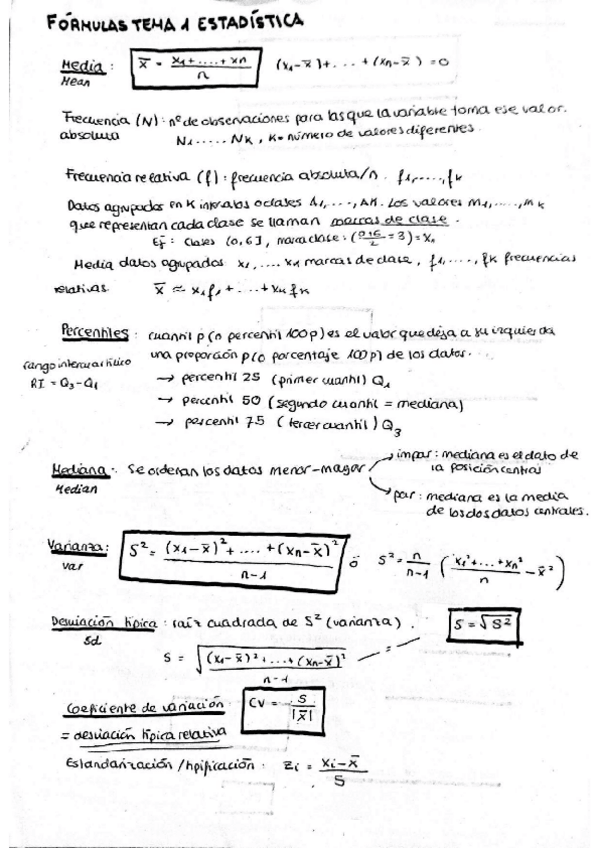 FÓRMULAS TEMA 1 ESTADÍSTICA
Media : x̄ = x1 + .... + xn / n (x1 - x̄) + ... + (xn - x̄) = 0
Mean
Frecuencia (N) : nº de observaciones para las que la variable toma ese valor.
absoluta N1 ..... NK , K = número de valores diferentes.
Frecuencia relativa (f) : frecuencia absoluta/n . f1, ..., fk
Datos agrupados en K intervalos o clases A1, ..., AK. Los valores m1, ...., mk
que representan cada clase se llaman marcas de clase.
Ej: Clases (0,6], marca clase : (0+6/2 = 3) = xn
Media datos agrupados x1, .... xk marcas de clase, f1, ...., fk frecuencias
relativas x̄ ≈ x1 f1 + ... + xk fk
Percentiles : cuantil p (n percentil 100p) es el valor que deja a su izquierda
una proporción p (o porcentaje 100p) de los datos.
rango intercuartílico
RI = Q3 - Q1
→ percentil 25 (primer cuantil) Q1
→ percentil 50 (segundo cuantil = mediana)
→ percentil 75 (tercer cuantil) Q3
Mediana : se ordenan los datos menor-mayor
Median
impar : mediana es el dato de
la posición central
par : mediana es la media
de los dos datos centrales.
Varianza : S² = (x1 - x̄)² + .... + (xn - x̄)² / n-1 ó S² = n / n-1 (x1² + ... + xn² / n - x̄²)
var
Desviación típica : raíz cuadrada de S² (varianza) . S = √S²
sd
S = √(x1 - x̄)² + ... + (xn - x̄)² / n-1
Coeficiente de variación CV = S / |x̄|
= desviación típica relativa
Estandarización / tipificación : Zi = xi - x̄ / S